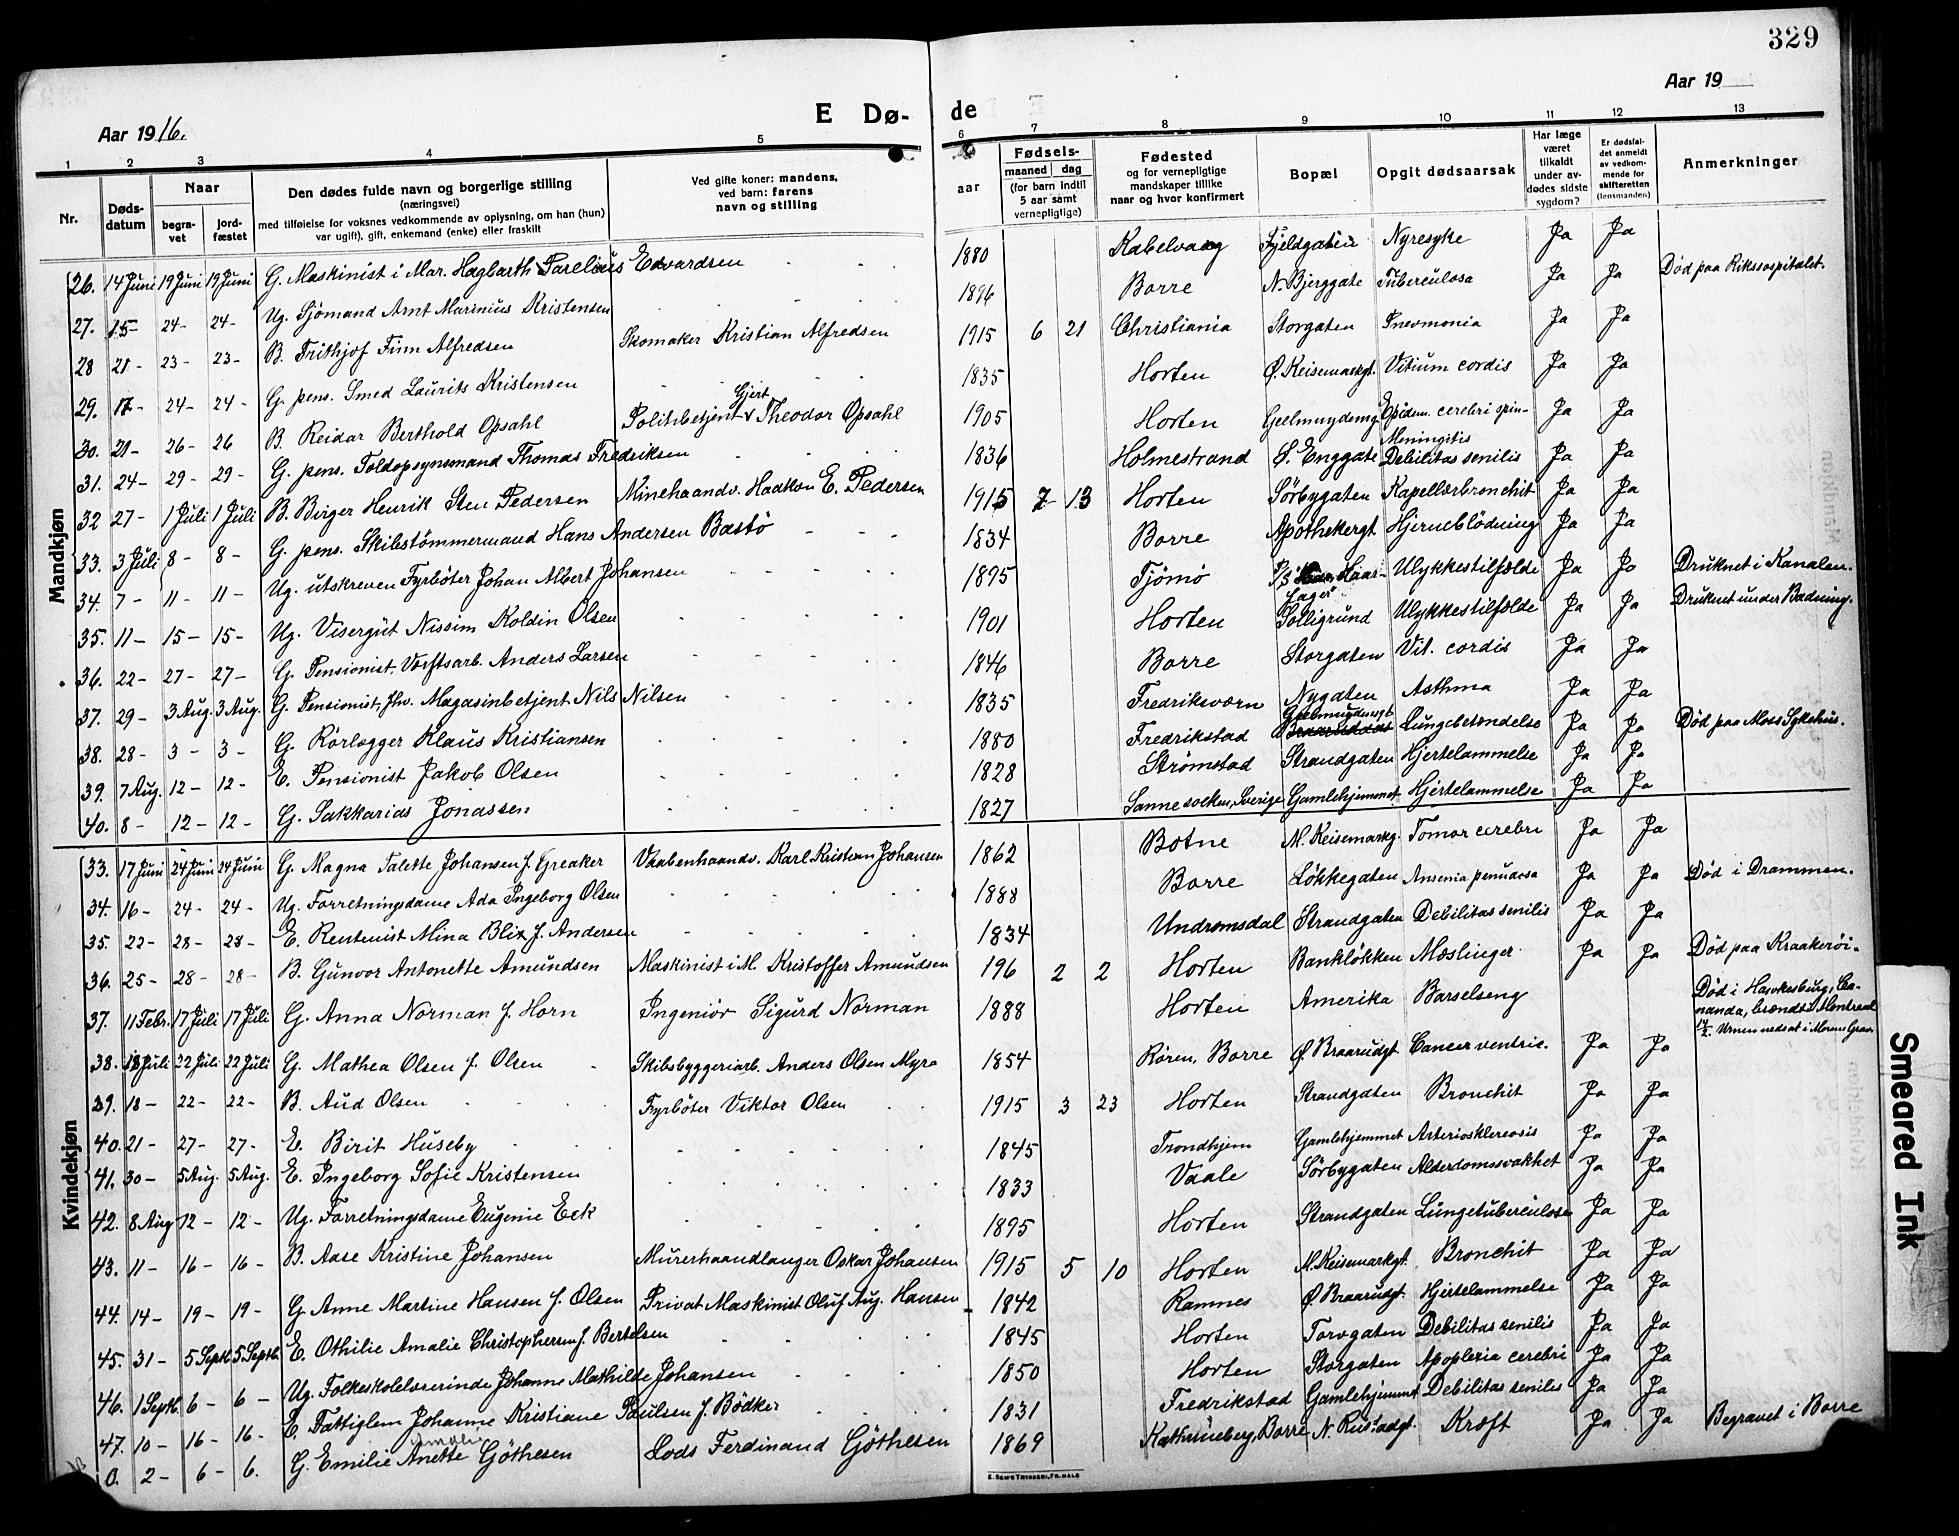 329
Aar 1916.
E Dø-
de
Aar 19
1 2 3 4 5 6 7 8 9 10 11 12 13
Nr.
Døds-
datum
Naar
begra-
vet
jord-
fæstet
Den dødes fulde navn og borgerlige stilling
(næringsvei)
med tilføielse for voksnes vedkommende av oplysning, om han (hun)
var ugift), gift, enkemand (enke) eller fraskilt
Ved gifte koner: mandens,
ved barn: farens
navn og stilling
aar
Fødsels-
maaned dag
(for barn indtil
5 aar samt
vernepligtige)
Fødested
og for vernepligtige
mandskaper tillike
naar og hvor konfirmert
Bopæl
Opgit dødsaarsak
Har læge
været
tilkaldt
under av-
dødes sidste
sygdom?
Er dødsfal-
det anmeldt
av vedkom-
mende for
skifteretten
(lensmanden)
Anmerkninger
Mandkjøn
26. 14 Juni 19 Juni 19 Juni G. Maskinist i Mar. Hagbarth Parelius Edvardsen 1880 Kabelvaag Fjeldgaten Nyresyke Ja Ja
27. 15- 24- 24- Ug. Sjömand Arnt Marinius Kristensen 1896 Borre N. Bjerggate Tuberculosa Ja Ja Död paa Rikshospitalet.
28 21- 23- 23- B. Frithjof Finn Alfredsen Skomaker Kristian Alfredsen 1915 6 21 Christiania Storgaten Pnevmonia Ja Ja
29. 17- 24- 24- G. pens. Smed Laurits Kristensen 1835 Horten Ö. Keisemarkgt. Vitium cordis Ja Ja
30. 21- 26- 26 B. Reidar Berthold Opsahl Politibetjent Gjert Theodor Opsahl 1905 Horten Geelmuydensg. Epidem. cerebri spin- Meningitis Ja Ja
31. 24- 29- 29- G. pens. Toldopsynsmand Thomas Fredriksen 1836 Holmestrand Ø. Enggate Debilitas senilis Ja Ja
32 27- 1 Juli 1 Juli B. Birger Henrik Sten Pedersen Minehaandv. Haakon E. Pedersen 1915 7 13 Horten Sörbygaten Kapellærbronchit Ja Ja
33. 3 Juli 8- 8- G. pens. Skibstömmermand Hans Andersen Bastö 1834 Borre Apothekergt. Hjerneblödning Ja Ja
34. 7- 11- 11- Ug. utskreven Fyrböter Johan Albert Johansen 1895 Tjömö P/S Haar- Ulykkestilfælde Ja Ja Druknet i Kanalen.
fager"
35. 11- 15- 15- Ug. Visergut Nissim Koldin Olsen 1901 Horten Solligrund Ulykkestilfælde Ja Ja Druknet under Badning.
36. 22- 27- 27- G. Pensionist, Verftsarb. Anders Larsen 1846 Borre Storgaten Vit. cordis Ja Ja
37. 29- 3 Aug. 3 Aug. G. Pensionist, Magasinbetjent Nils Nilsen 1835 Fredriksværn Nygaten Asthma Ja Ja
38. 28- 3- 3- G. Rörlægger Klaus Kristiansen 1880 Fredrikstad Geelmuydensgt Lungebetændelse Ja Ja Död paa Moss Sykehus.
39. 7 Aug. 12- 12- E. Pensionist Jakob Olsen 1828 Strömstad Strandgaten Hjertelammelse Ja Ja
40. 8- 12- 12- G. Sakkarias Jonassen 1827 Sanne socken, Sverige Gamlehjemmet Hjertelammelse Ja Ja
Kvindekjøn
33. 17 Juni 24 Juni 24 Juni G. Magna Talette Johansen f. Greaker Vaabenhaandv. Karl Kristian Johansen 1862 Botne M. Keisemarkg. Tomor cerebri Ja Ja
34. 16- 24- 24- Ug. Forretningsdame Ada Ingeborg Olsen 1888 Borre Lökkegaten Ja Ja Död i Drammen.
35. 22- 28- 28- E. Rentenist Mina Blix f. Andersen 1834 Undrumsdal Strandgaten Debilitas senilis Ja Ja
36. 25- 28- 28- B. Gunvor Antonette Amundsen Maskinist i M. Kristoffer Amundsen 196 2 2 Horten Banklökken Mæslinger Ja Ja Död paa Kraakeröi.
37. 11 Febr. 17 Juli 17 Juli G. Anna Norman f. Horn Ingeniör Sigurd Norman 1888 Horten Amerika Barselseng Död i Hawkesburg, Ca-
nanda, brændt i Montreal
Urnen nedsat i Morens Grav
38. 18 Juli 22 Juli 22 Juli G. Mathea Olsen f. Olsen Skibsbyggeriarb. Anders Olsen Myra 1854 Rören, Borre Ø. Braarudgt. Cancer ventric. Ja Ja
39. 18- 22- 22- B. Aud Olsen Fyrböter Viktor Olsen 1915 3 23 Horten Strandgaten Bronchit Ja Ja
40. 21- 27- 27- E. Birit Huseby 1845 Trondhjem Gamlehjemmet Arteriosklerosis Ja Ja
41. 30- 5 Aug. 5 Aug. E. Ingeborg Sofie Kristensen 1833 Vaale Sörbygaten Alderdomssvakhet Ja Ja
42. 8 Aug 12- 12- Ug. Forretningsdame Eugenie Eek 1895 Horten Strandgaten Lungetuberculose Ja Ja
43. 11- 16- 16- B. Aase Kristine Johansen Murerhaandlanger Oskar Johansen 1915 5 10 Horten M. Keisemarkgt. Bronchit Ja Ja
44. 14- 19- 19- G. Anne Martine Hansen f. Olsen Privat Maskinist Oluf Aug. Hansen 1842 Ramnes Ø. Braarudgt. Hjertelammelse Ja Ja
45. 31- 5 Septb. 5 Septb. E. Othilie Amalie Christophersen f. Bertelsen 1845 Horten Torvgaten Debilitas senilis Ja Ja
46. 1 Septb. 6- 6- Ug. Folkeskolelærerinde Johanne Mathilde Johansen 1850 Horten Storgaten Apoplexia cerebri Ja Ja
47. 10- 16- 16- E. Fattiglem Johanne Kristiane Paulsen f. Bödker 1831 Fredrikstad Gamlehjemmet Debilitas senilis Ja Ja
0. 2- 6- 6. G. Emilie Anette Amalie Göthesen Lods Ferdinand Göthesen 1869 Kathrineberg, Borre N. Rustadgt. Kræft Ja Ja Begravet i Borre
Smeared Ink